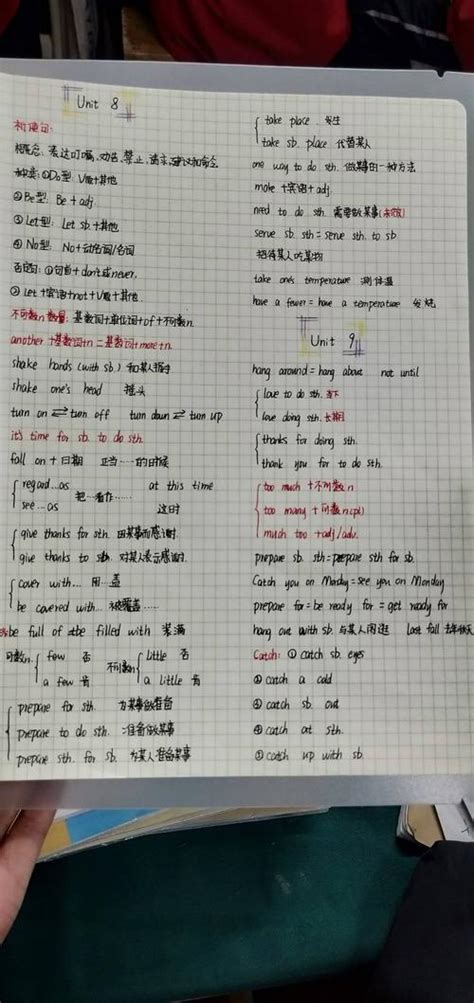 Unit 8
祈使句:
概念: 表达叮嘱、劝告、禁止、请求、建议和命令
种类: ①Do型 V原+其他
②Be型: Be + adj.
③Let型: Let sb.+其他
④No型: No+动名词/名词
否定句: ①句首+don't或never.
②Let+宾语+not+V原+其他.
不可数n数量: 基数词+单位词+of+不可数n.
another +基数词+n = 基数词+more+n.
shake hands (with sb.) 和某人握手
shake one's head 摇头
turn on ⇄ turn off turn down ⇄ turn up
it's time for sb. to do sth.
fall on + 日期 正当……的时候
regard...as at this time
see...as 把…看作…… 这时
give thanks for sth. 因某事而感谢
give thanks to sb. 对某人表示感谢
cover with... 用…盖
be covered with... 被覆盖……
be full of = be filled with 装满
可数n. few 否 不可数n little 否
a few 肯 a little 肯
prepare for sth. 为某事做准备
prepare to do sth. 准备做某事
prepare sth. for sb. 为某人准备某事
take place 发生
take sb. place 代替某人
one way to do sth. 做某事的一种方法
make +宾语+ adj.
need to do sth. 需要做某事
serve sb. sth = serve sth. to sb
把某人吃某物
take one's temperature 测体温
have a fever = have a temperature 发烧
Unit 9
hang around = hang about not until
love to do sth. 当下
love doing sth. 长期
thanks for doing sth.
thank you for to do sth.
too much +不可数n
too many +可数n(pl)
much too +adj/adv.
prepare sb. sth = prepare sth for sb.
Catch you on Monday = see you on Monday
prepare for = be ready for = get ready for
hang out with sb. 与某人闲逛 last fall 去年秋天
Catch: ① catch sb. eyes
② catch a cold
③ catch sb. out
④ catch at sth.
⑤ catch up with sb.